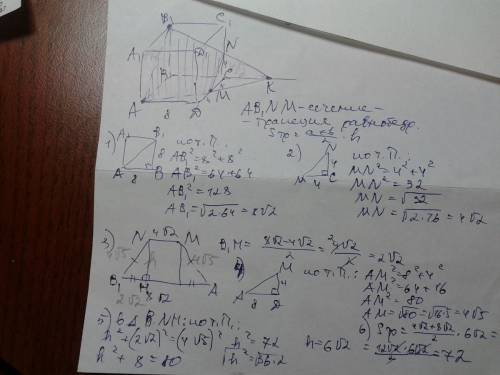 B₁
C₁
A₁
D₁
N
B
C
K
M
A
8
D
AB₁NM - сечение -
- трапеция равнобедр.
Sтр = a+b/2 · h
1)
A₁
B₁
8
A
8
B
по т. П.:
AB₁² = 8² + 8²
AB₁² = 64 + 64
AB₁² = 128
AB₁ = √2·64 = 8√2
2)
N
4
M
4
C
по т. П.:
MN² = 4² + 4²
MN² = 32
MN = √32
MN = √2·16 = 4√2
3)
N
4√2
M
4√5
h
4√5
B₁
H
A
2√2
8√2
B₁H = 8√2 - 4√2/2 = 4√2/2 = 2√2
4)
M
4
A
8
D
по т. П.:
AM² = 8² + 4²
AM² = 64 + 16
AM² = 80
AM = √80 = √16·5 = 4√5
5) б Δ B₁NH: по т. П.:
h² + (2√2)² = (4√5)²
h² + 8 = 80
h² = 72
h = √36·2
h = 6√2
6) Sтр = 4√2 + 8√2/2 · 6√2 =
= 12√2 · 6√2/2 = 72